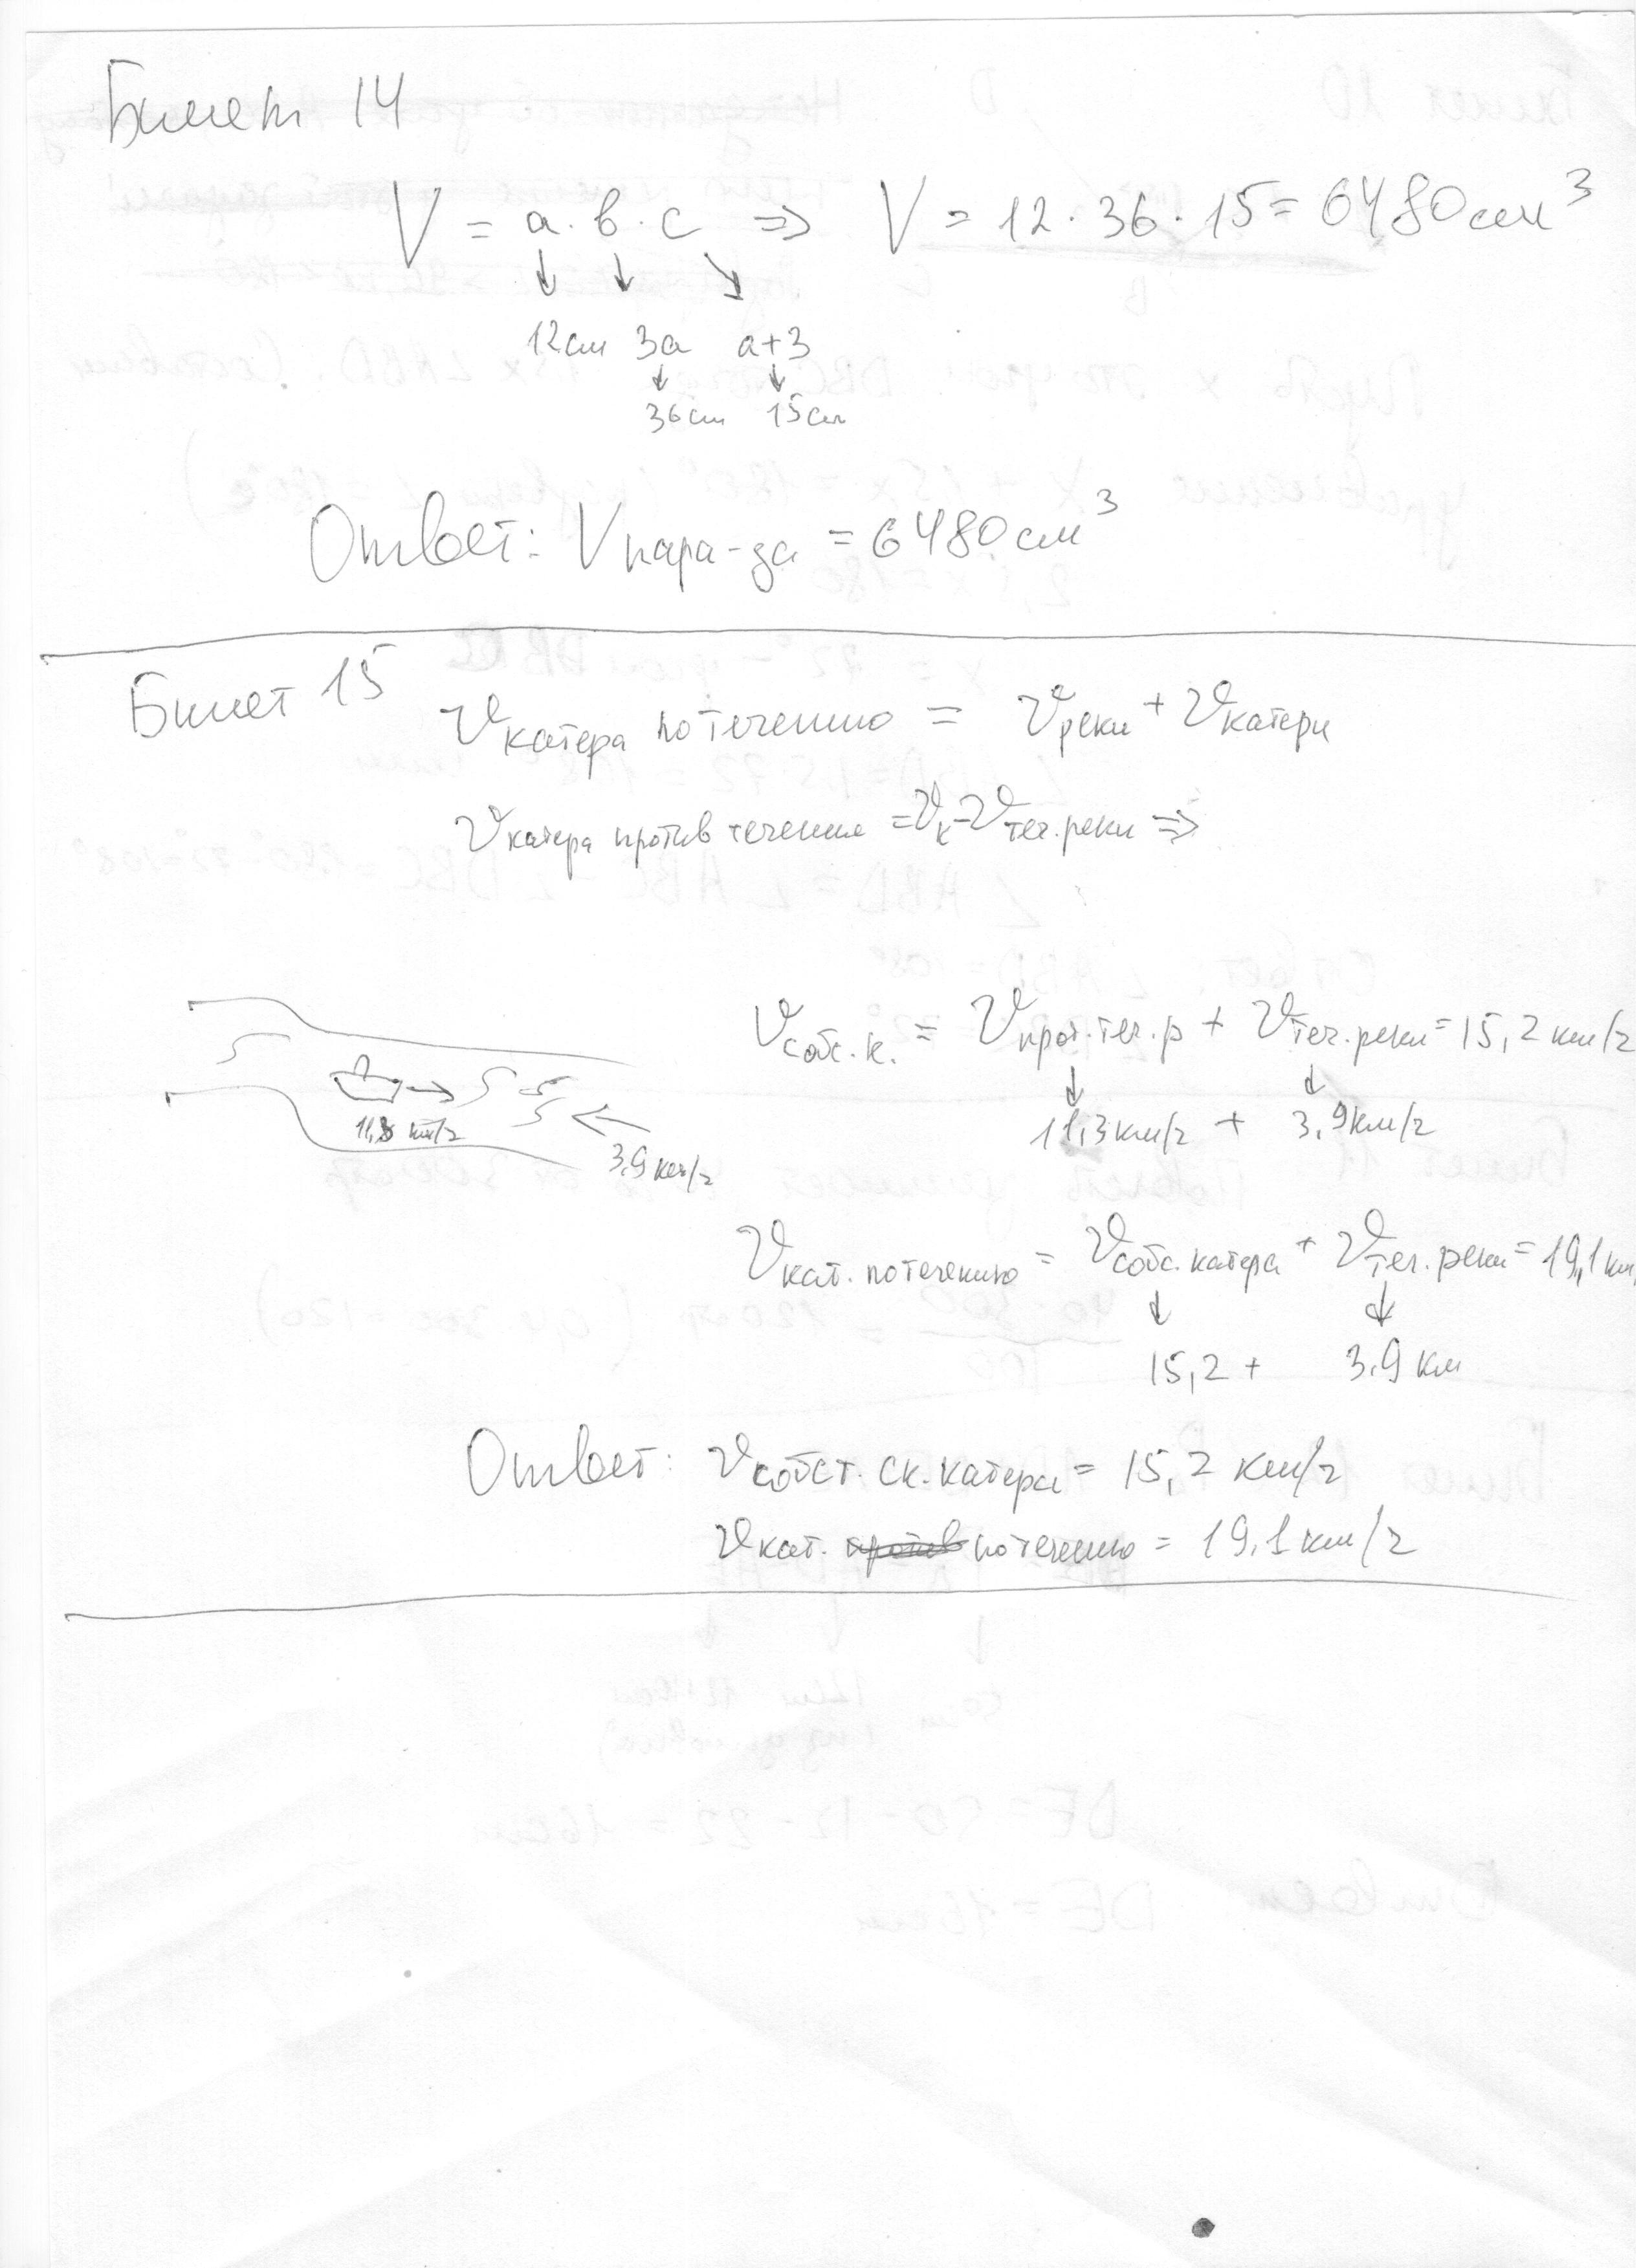 Билет 14
V = a · в · c => V = 12 · 36 · 15 = 6480 см³
12см 3a a+3
36см 15см
Ответ: V пара-да = 6480 см³
Билет 15
V катера по течению = V реки + V катера
V катера против течения = Vк - V теч. реки =>
V собс. к. = V прот. теч. р + V теч. реки = 15,2 км/г
11,3 км/г + 3,9 км/г
11,3 км/г
3,9 км/г
V кат. по течению = V собс. катера + V теч. реки = 19,1 км
15,2 + 3,9 км
Ответ: V собст. ск. катера = 15,2 км/г
V кат. по течению = 19,1 км/г